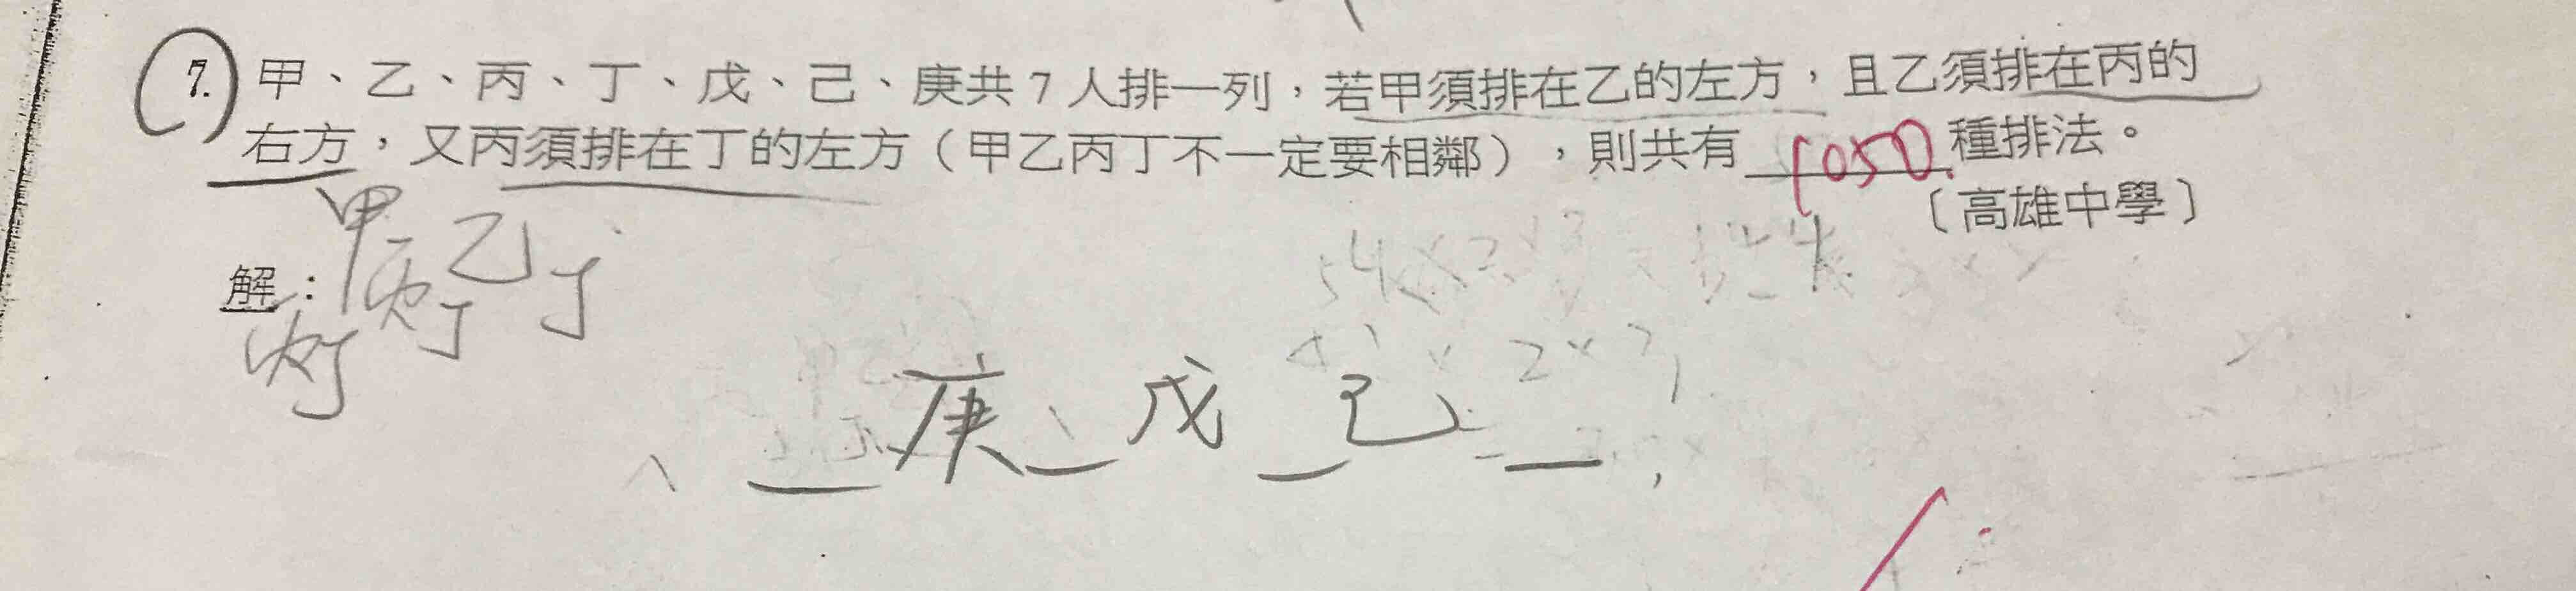 7. 甲、乙、丙、丁、戊、己、庚共7人排一列，若甲須排在乙的左方，且乙須排在丙的
右方，又丙須排在丁的左方（甲乙丙丁不一定要相鄰），則共有 1050 種排法。
〔高雄中學〕
解：
甲 乙 丁
丙 丁
丙丁
庚 戊 己